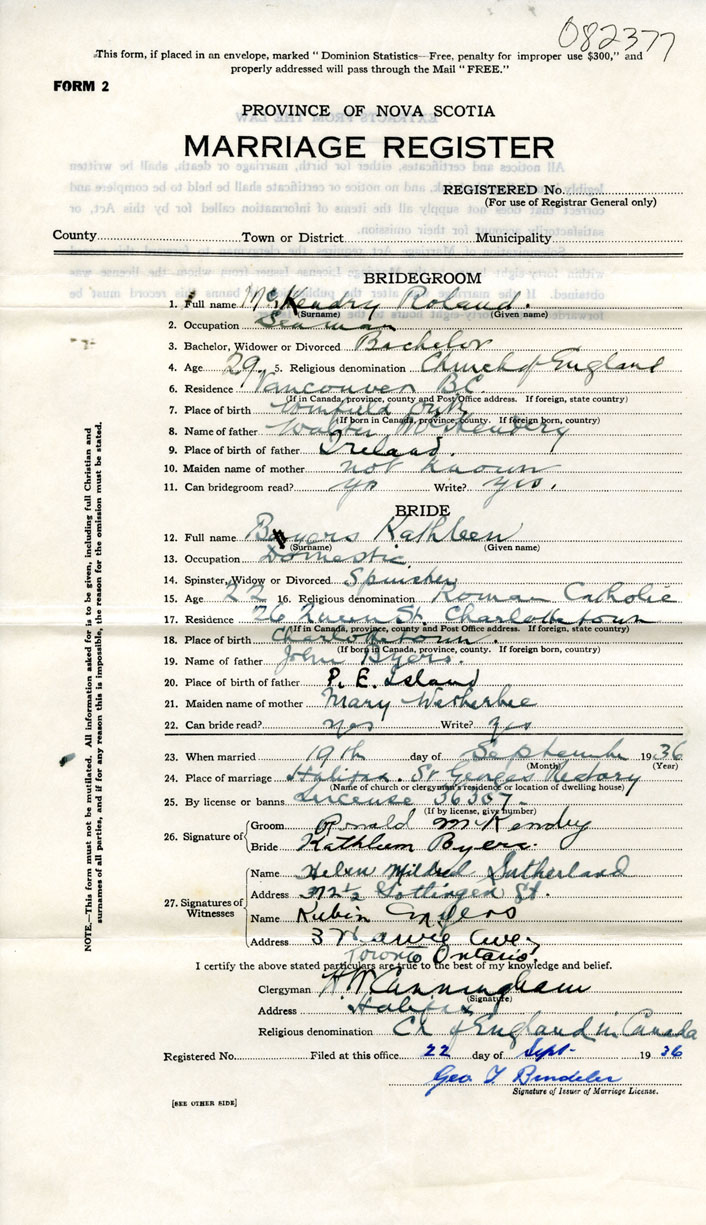 082377
This form, if placed in an envelope, marked "Dominion Statistics—Free, penalty for improper use $300," and
properly addressed will pass through the Mail "FREE."
FORM 2
PROVINCE OF NOVA SCOTIA
MARRIAGE REGISTER
REGISTERED No.
(For use of Registrar General only)
County Town or District Municipality
BRIDEGROOM
1. Full name McKendry Roland.
(Surname) (Given name)
2. Occupation Seaman
3. Bachelor, Widower or Divorced Bachelor
4. Age 29 5. Religious denomination Church of England
6. Residence Vancouver B.C.
(If in Canada, province, county and Post Office address. If foreign, state country)
7. Place of birth
(If born in Canada, province, county. If foreign born, country)
8. Name of father Walter
9. Place of birth of father Ireland.
10. Maiden name of mother not known
11. Can bridegroom read? yes Write? yes.
BRIDE
12. Full name Byers Kathleen
(Surname) (Given name)
13. Occupation Domestic
14. Spinster, Widow or Divorced Spinster
15. Age 22 16. Religious denomination Roman Catholic
17. Residence 26 Queen St. Charlottetown
(If in Canada, province, county and Post Office address. If foreign, state country)
18. Place of birth Charlottetown.
(If born in Canada, province, county. If foreign born, country)
19. Name of father John Byers.
20. Place of birth of father P. E. Island
21. Maiden name of mother Mary Weatherbie
22. Can bride read? yes Write? yes
23. When married 19th day of September 1936
(Month) (Year)
24. Place of marriage Halifax. St Georges Rectory
(Name of church or clergyman's residence or location of dwelling house)
25. By license or banns License 36357
(If by license, give number)
26. Signature of Groom Ronald McKendry
Bride Kathleen Byers.
27. Signatures of Witnesses
Name Helen Mildred Sutherland
Address Gottingen St.
Name Rubin
Address 3 Harvie Ave,
Toronto Ontario.
I certify the above stated particulars are true to the best of my knowledge and belief.
Clergyman H W Cunningham
(Signature)
Address Halifax
Religious denomination Ch of England in Canada
Registered No. Filed at this office 22 day of Sept. 1936
Geo T
Signature of Issuer of Marriage License.
[SEE OTHER SIDE]
NOTE.—This form must not be mutilated. All information asked for is to be given, including full Christian and
surnames of all parties, and if for any reason this is impossible, the reason for the omission must be stated.